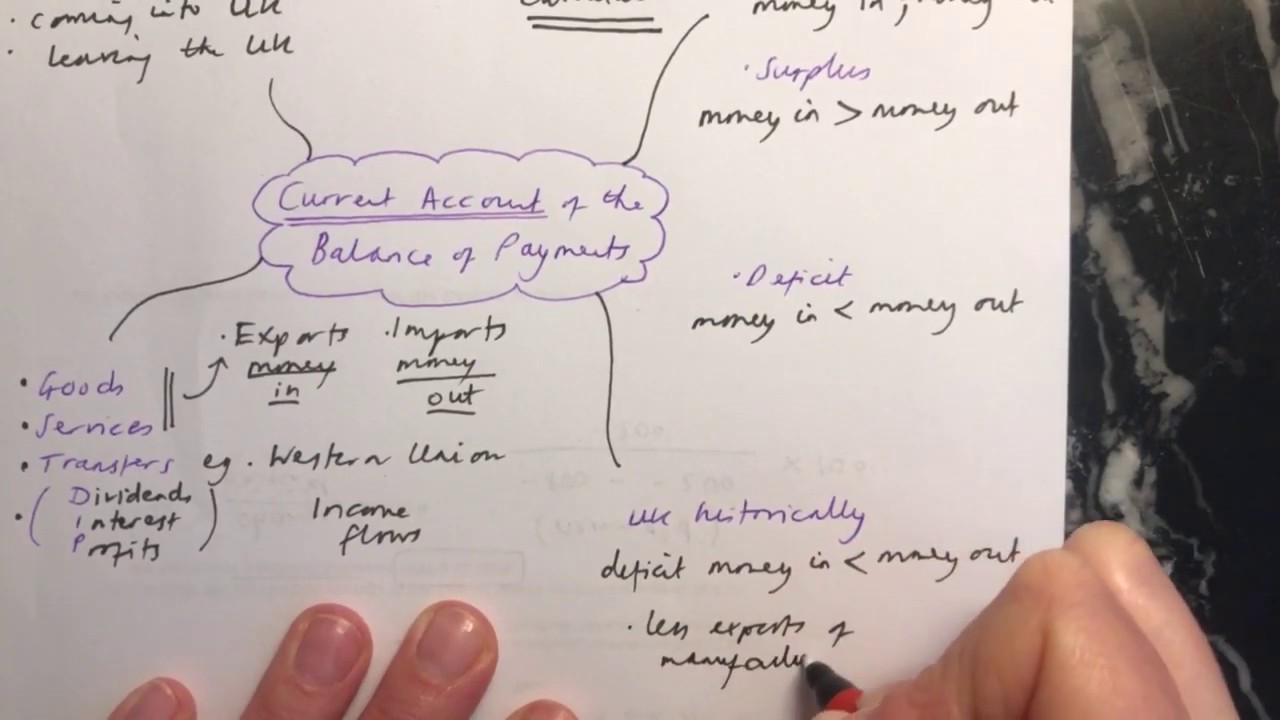 · coming into UK
· leaving the UK
money in , money
· Surplus
money in > money out
Current Account of the
Balance of Payments
· Deficit
money in < money out
· Exports
money
in
· Imports
money
out
· Goods
· Services
· Transfers eg. Western Union
· ( Dividends
Interest
Profits )
Income
flows
UK historically
deficit money in < money out
· less exports of